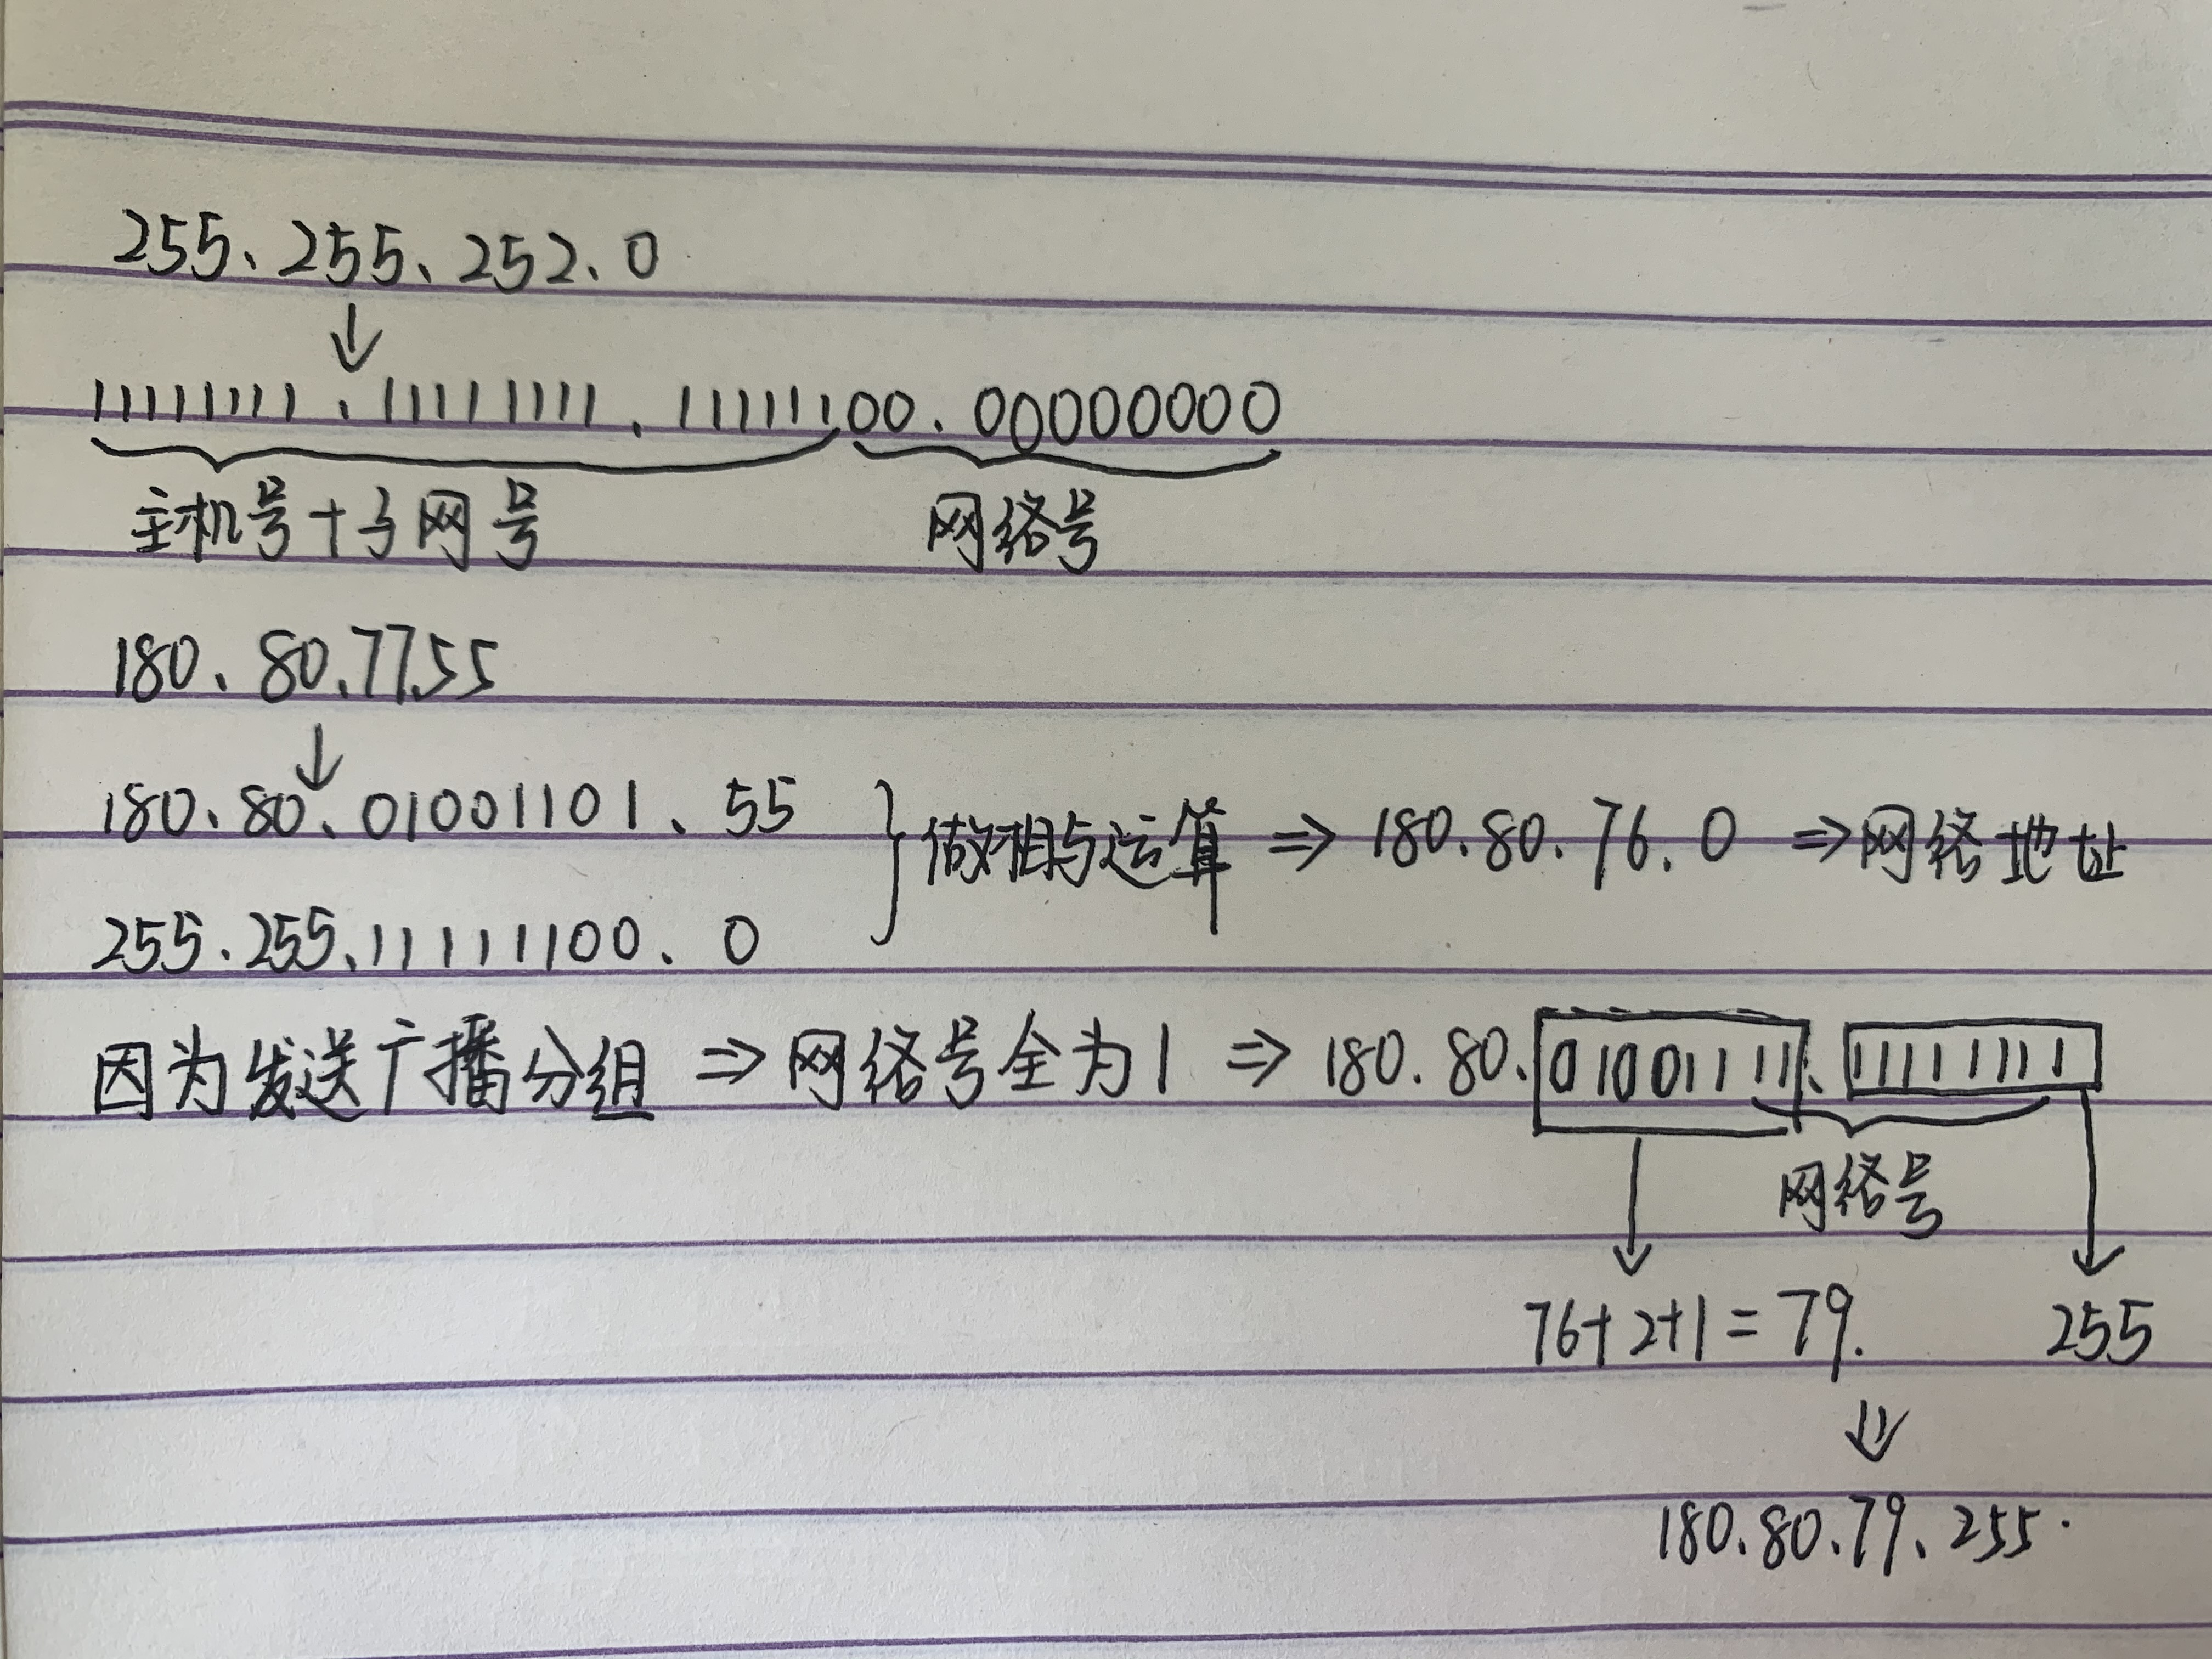 255.255.252.0
↓
11111111.11111111.11111100.00000000
主机号+子网号 网络号
180.80.77.55
↓
180.80.01001101.55
255.255.11111100.0
}做相与运算 ⇒ 180.80.76.0 ⇒网络地址
因为发送广播分组 ⇒ 网络号全为1 ⇒ 180.80.01001111.11111111
网络号
76+2+1=79. 255
⇓
180.80.79.255.